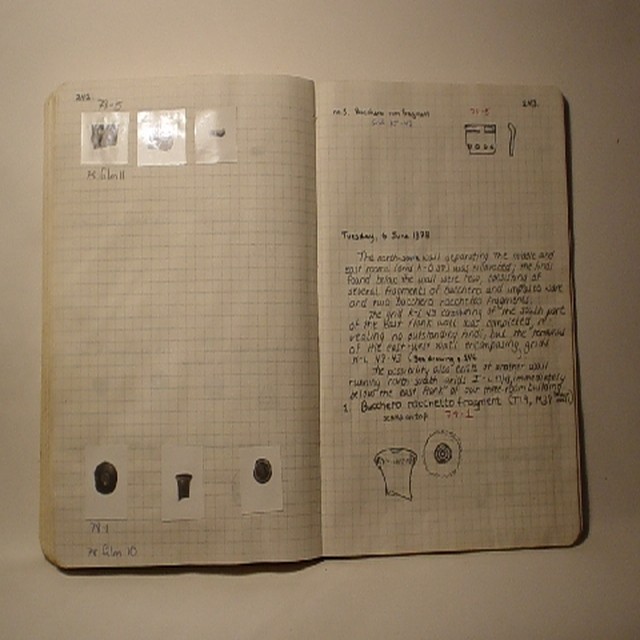 242.
78-5
78 film 11
78-1
78 film 10
243.
no. 5. Bucchero rim fragment
78-5
Tuesday, 6 June 1978
The north-south wall separating the middle and
east rooms was removed; the finds
found below the wall were few, consisting of
several fragments of bucchero and impasto ware
and two Bucchero rocchetto fragments.
The grid K-L 43 consisting of the south part
of the East Flank wall was completed, re-
vealing no outstanding finds, but the remains
of the east-west wall encompassing grids
K-L 42-43. See drawing p. 246
The possibility also exists of another wall
running north south grids I-L immediately
below the east flank of our three-room building.
1. Bucchero rocchetto fragment
78-1